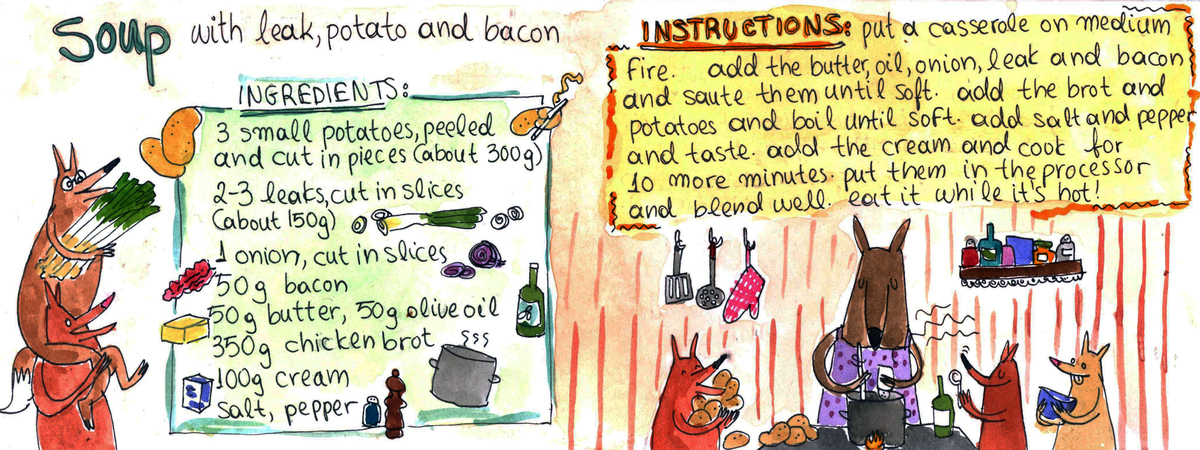 Soup with leak, potato and bacon
INGREDIENTS:
3 small potatoes, peeled
and cut in pieces (about 300g)
2-3 leaks, cut in slices
(about 150g)
1 onion, cut in slices
50g bacon
50g butter, 50g olive oil
350g chicken brot
100g cream
salt, pepper
INSTRUCTIONS: put a casserole on medium
fire. add the butter, oil, onion, leak and bacon
and saute them until soft. add the brot and
potatoes and boil until soft. add salt and pepper
and taste. add the cream and cook for
10 more minutes. put them in the processor
and blend well. eat it while it's hot!